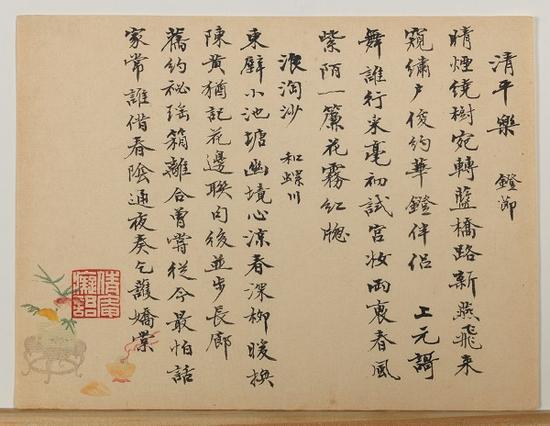 清平樂 鐙節
晴煙繞樹宛轉藍橋路新燕飛來
窺繡戶俊約華鐙伴侶 上元謌
舞誰行采毫初試宮妝雨裏春風
紫陌一簾花霧紅牕
浪淘沙 和螺川
東壁小池塘幽境心涼春深柳暖換
陳黃猶記花邊聯句後並步長廊
舊約祕瑤箱離合曾嘗從今最怕話
家常誰借春陰通夜奏乞護嬌棠